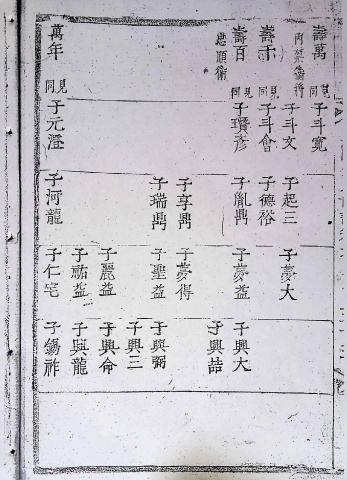 壽萬
内禁衛將
壽千
壽百
忠順衛
萬年
見同
子斗寬
子斗文
見同
子斗會
見同
子瓚彦
見同
子元澄
子起三
子德裕
子胤鼎
子享鼎
子瑞鼎
子河龍
子夢大
子夢益
子夢得
子聖益
子麗益
子祐益
子仁宅
子興大
子興喆
子興弼
子興三
子興命
子興龍
子錫祚